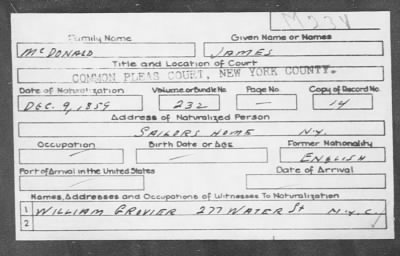 M234
Family Name Given Name or Names
McDONALD JAMES
Title and Location of Court
COMMON PLEAS COURT, NEW YORK COUNTY.
Date of Naturalization Volume or Bundle No. Page No. Copy of Record No.
DEC. 9, 1859 232 — 14
Address of Naturalized Person
SAILORS HOME N.Y.
Occupation Birth Date or Age Former Nationality
ENGLISH
Port of Arrival in the United States Date of Arrival
Names, Addresses and Occupations of Witnesses To Naturalization
1 WILLIAM GROVIER 277 WATER St N.Y.C.
2